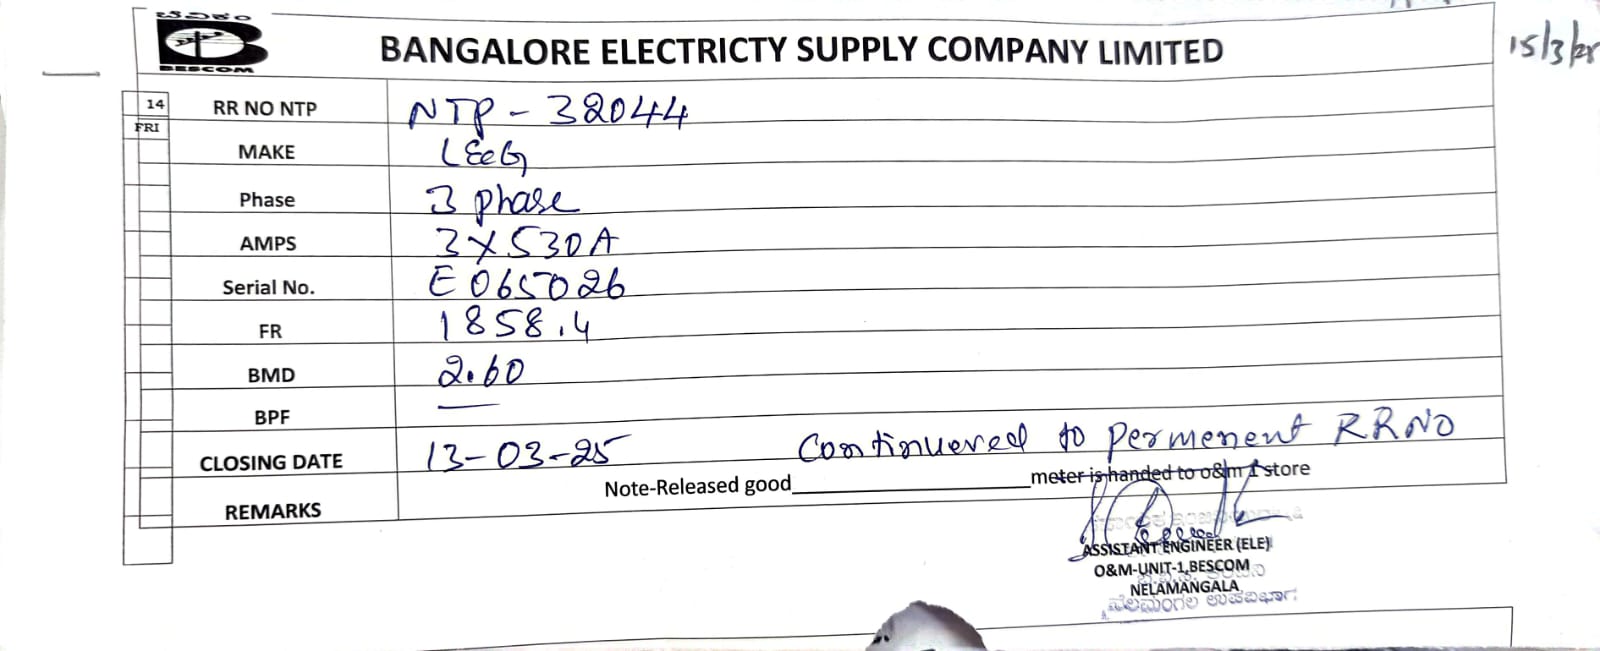 ಬೆವಿಕಂ
BESCOM
BANGALORE ELECTRICTY SUPPLY COMPANY LIMITED
15/3/25
14
FRI
RR NO NTP NTP - 32044
MAKE LEeG
Phase 3 phase
AMPS 3X530A
Serial No. E065026
FR 1858.4
BMD 2.60
BPF —
CLOSING DATE 13-03-25 Continuered to permenent RRNO
REMARKS Note-Released good meter is handed to o&m 1 store
ASSISTANT ENGINEER (ELE)
O&M-UNIT-1,BESCOM
NELAMANGALA
ನೆಲಮಂಗಲ ಉಪವಿಭಾಗ